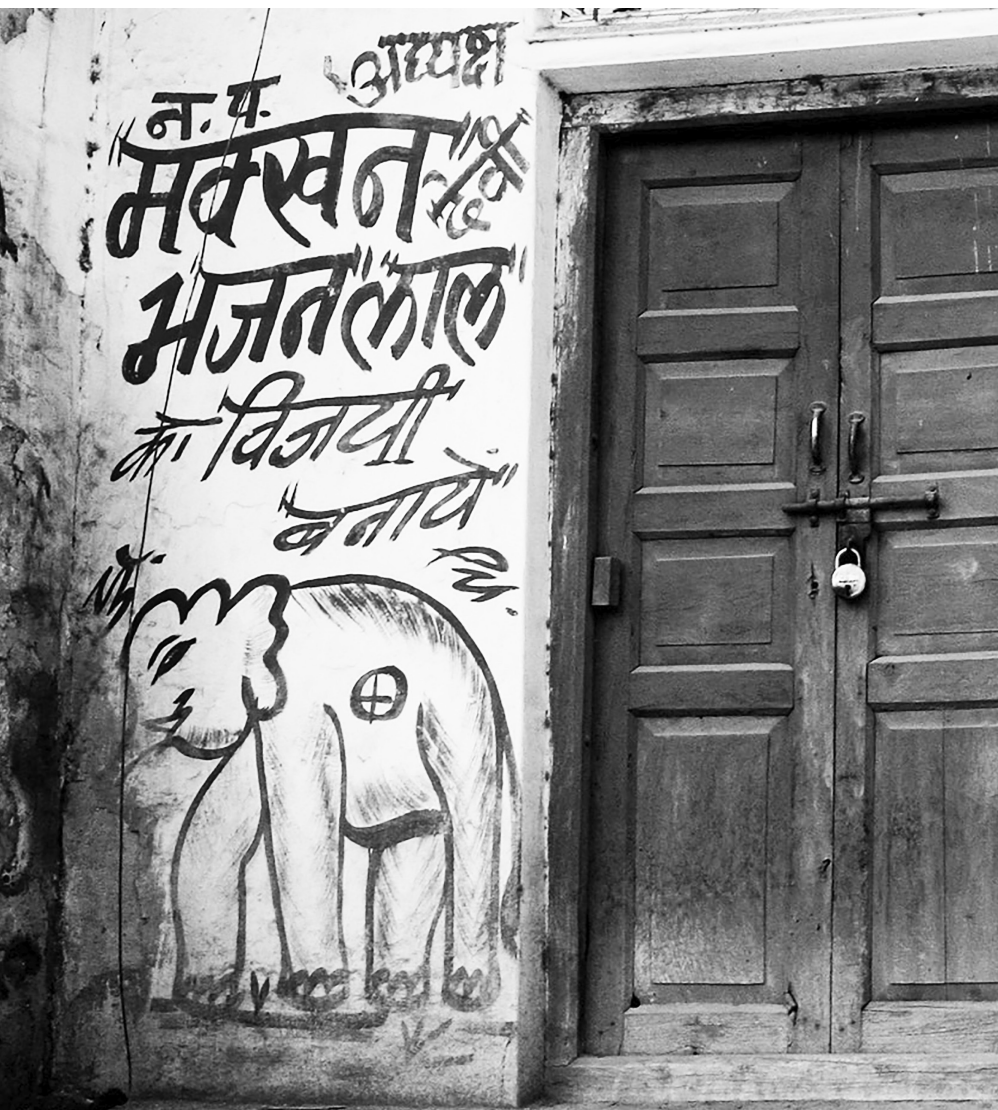 न.प. अध्यक्ष
"मक्खन"
भजन" "लाल"
को विजयी
बनायें"